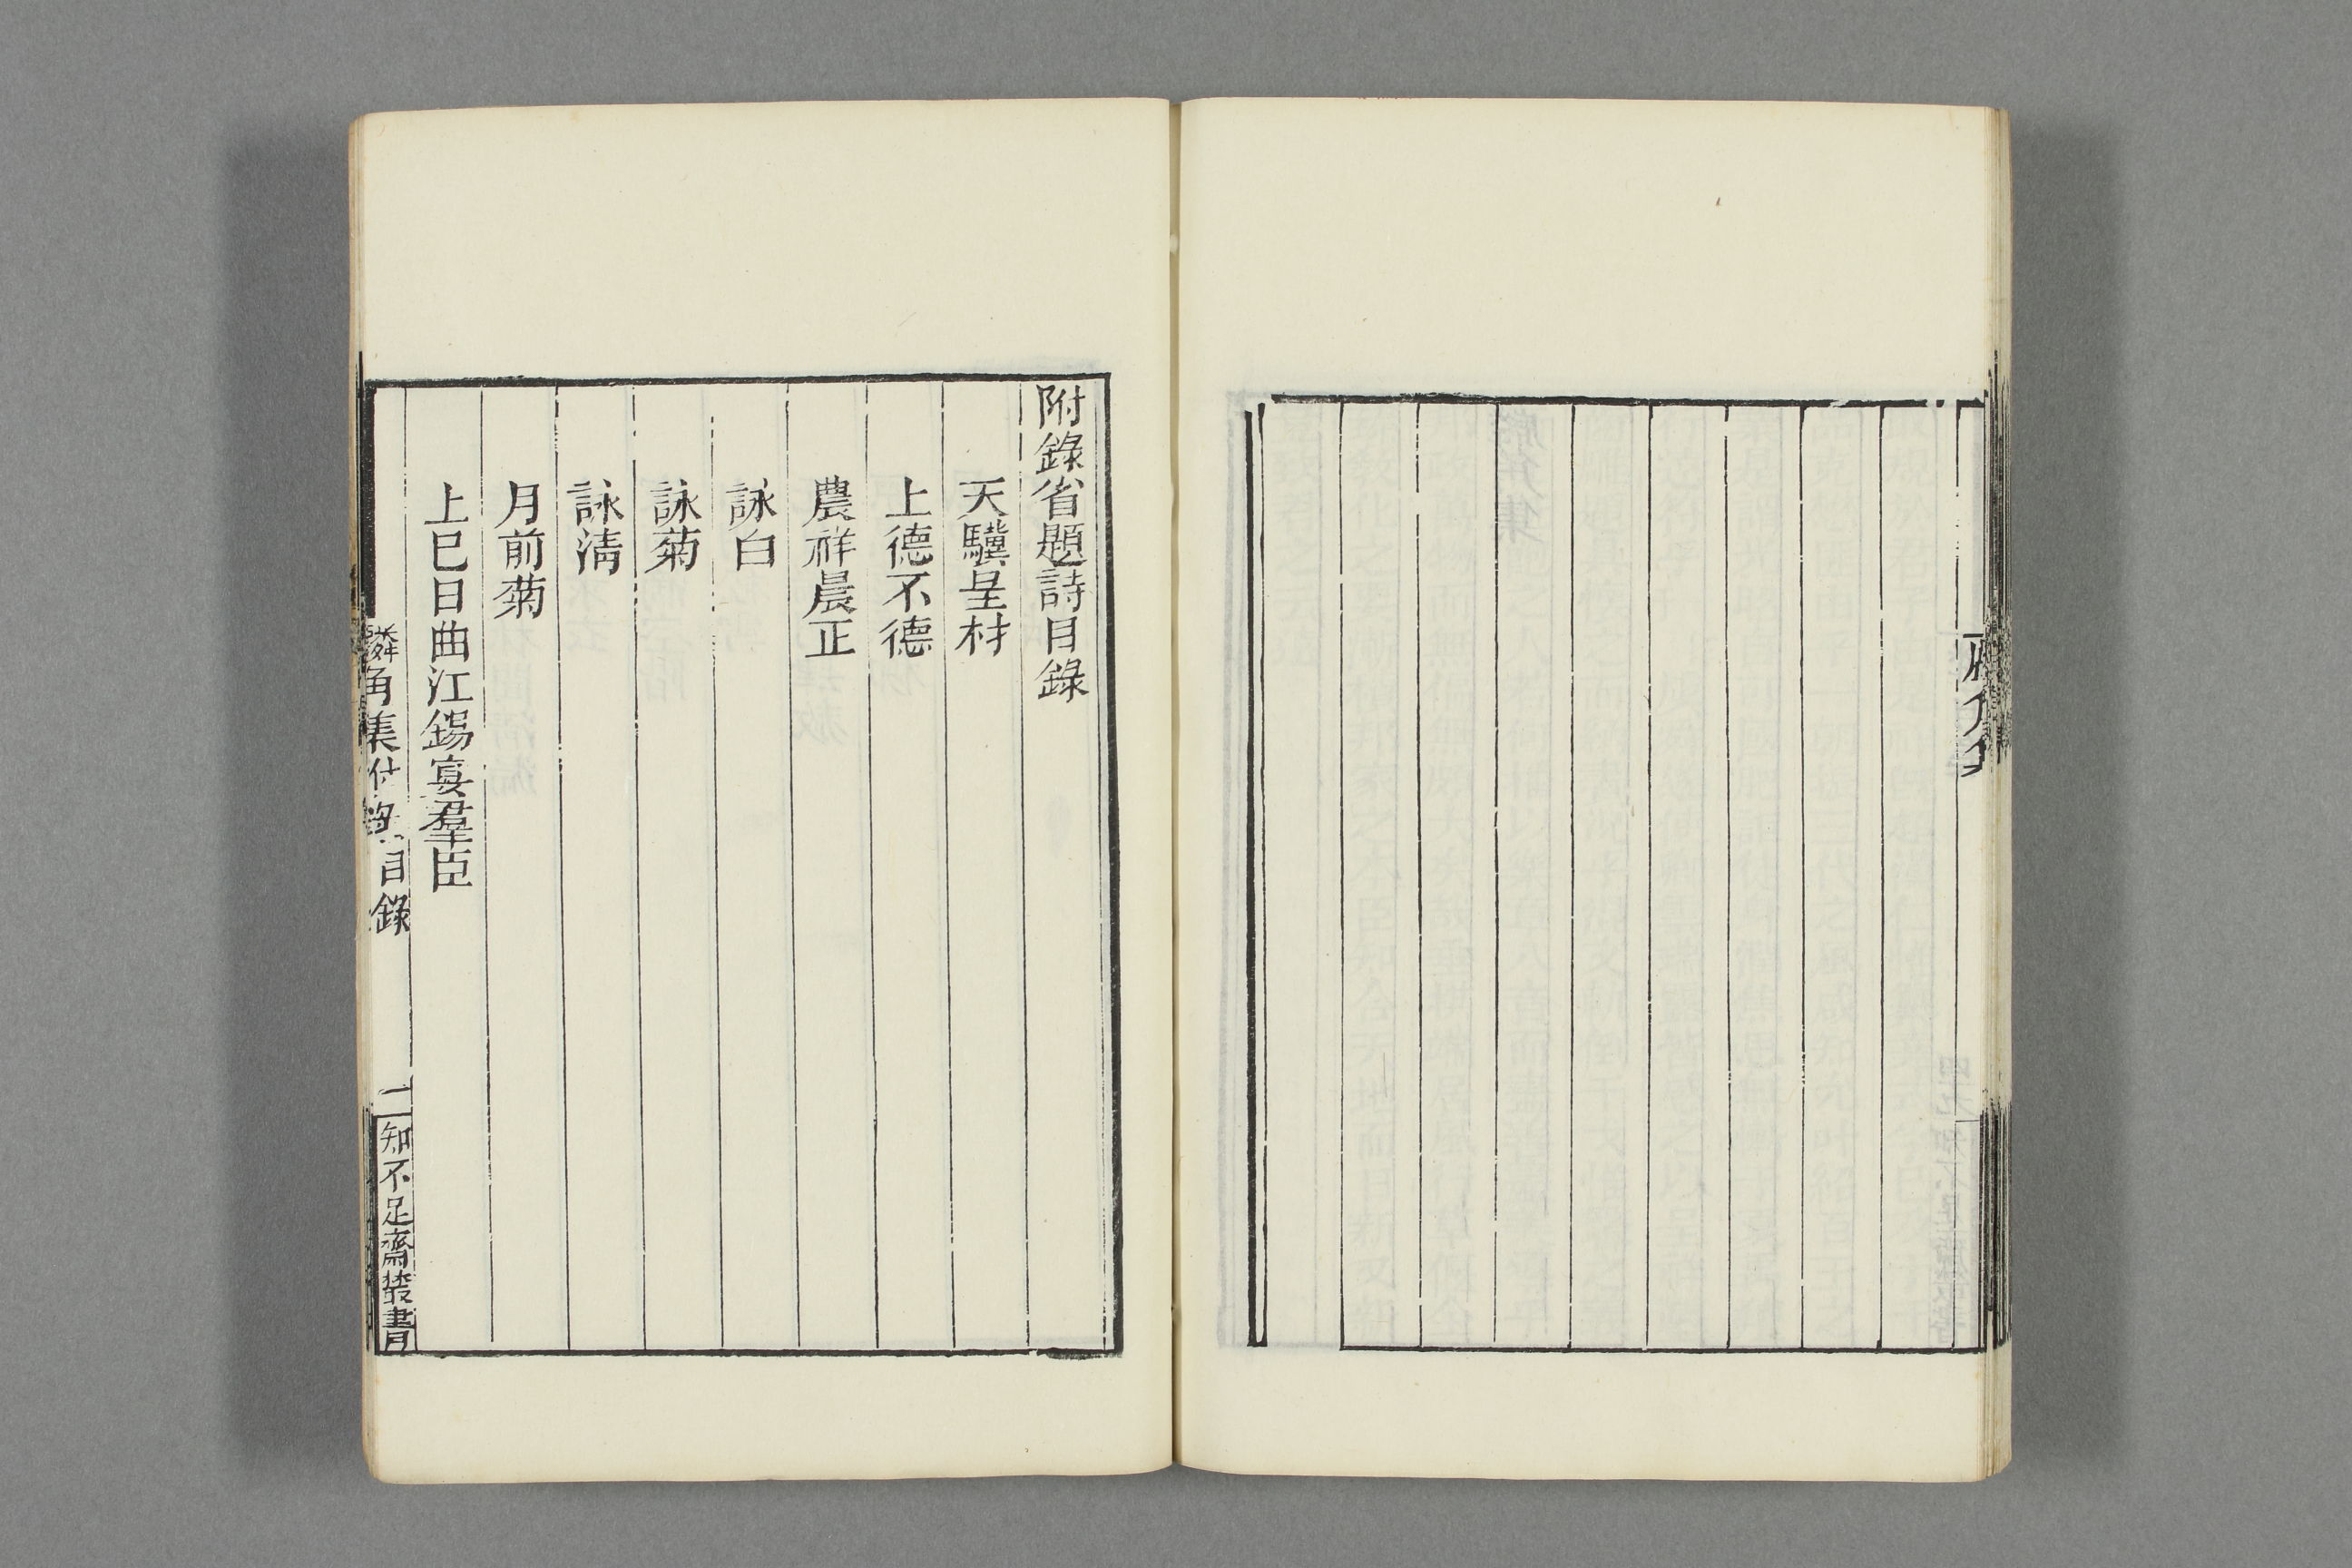 附錄省題詩目錄
天驥呈材
上德不德
農祥晨正
詠白
詠菊
詠清
月前菊
上巳日曲江錫宴羣臣
角集附錄目錄
一
知不足齋叢書